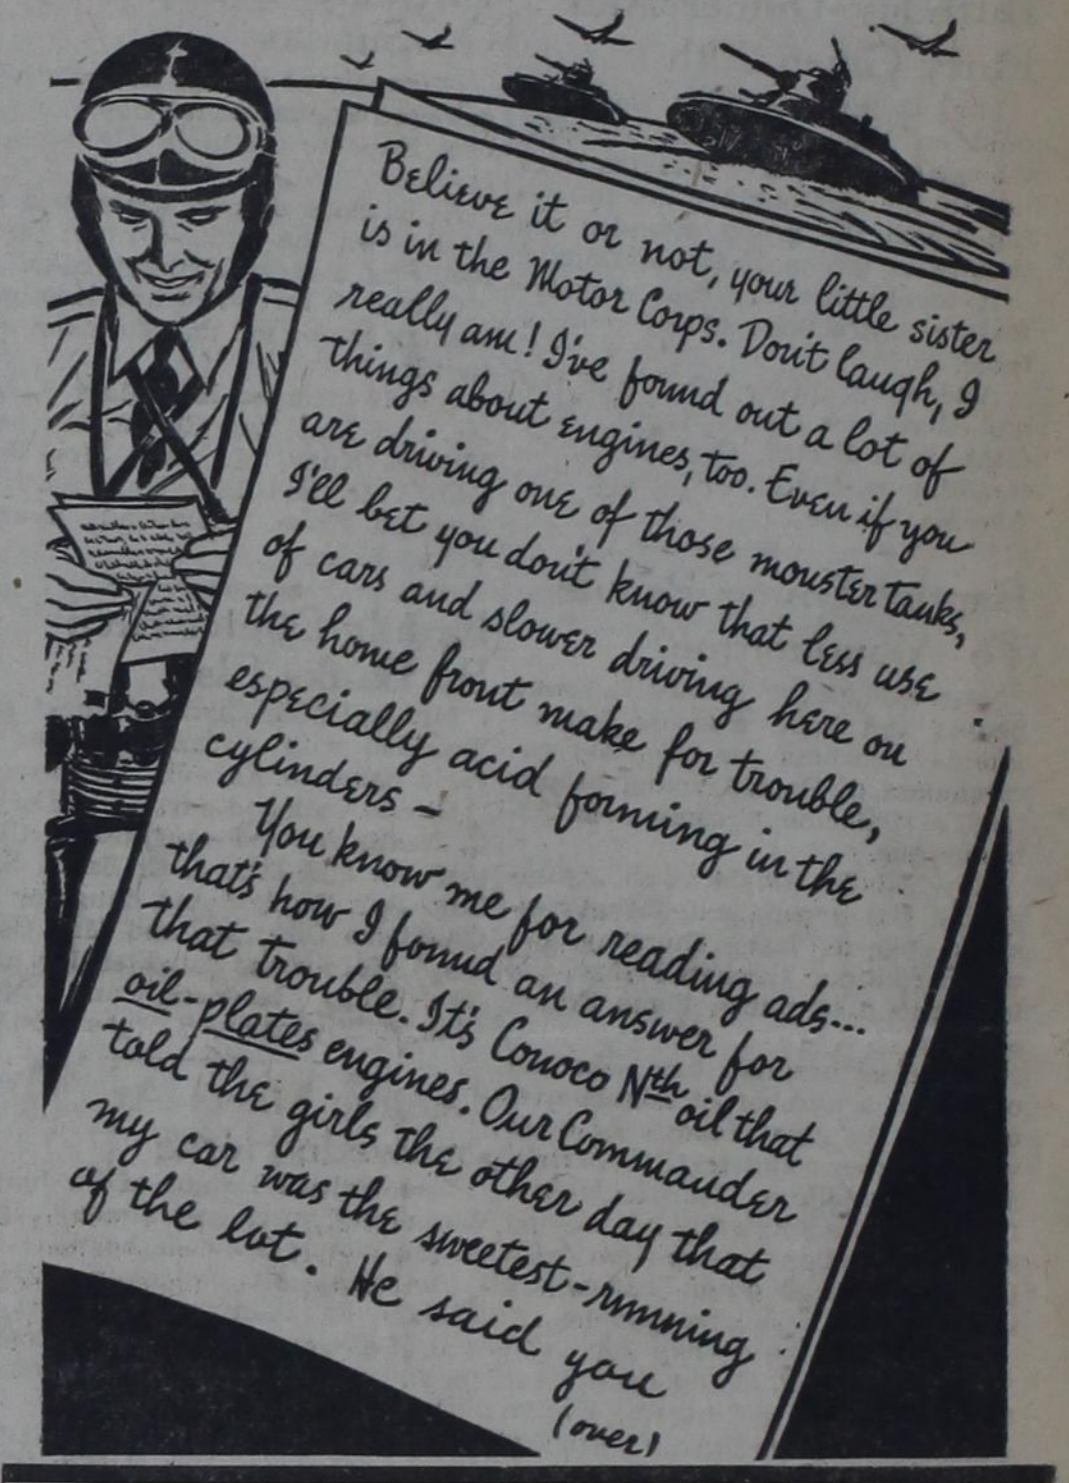 Believe it or not, your little sister
is in the Motor Corps. Don't laugh, I
really am! I've found out a lot of
things about engines, too. Even if you
are driving one of those monster tanks,
I'll bet you don't know that less use
of cars and slower driving here on
the home front make for trouble,
especially acid forming in the
cylinders -
You know me for reading ads...
that's how I found an answer for
that trouble. It's Conoco Nth oil that
oil-plates engines. Our Commander
told the girls the other day that
my car was the sweetest-running
of the lot. He said you
(over)